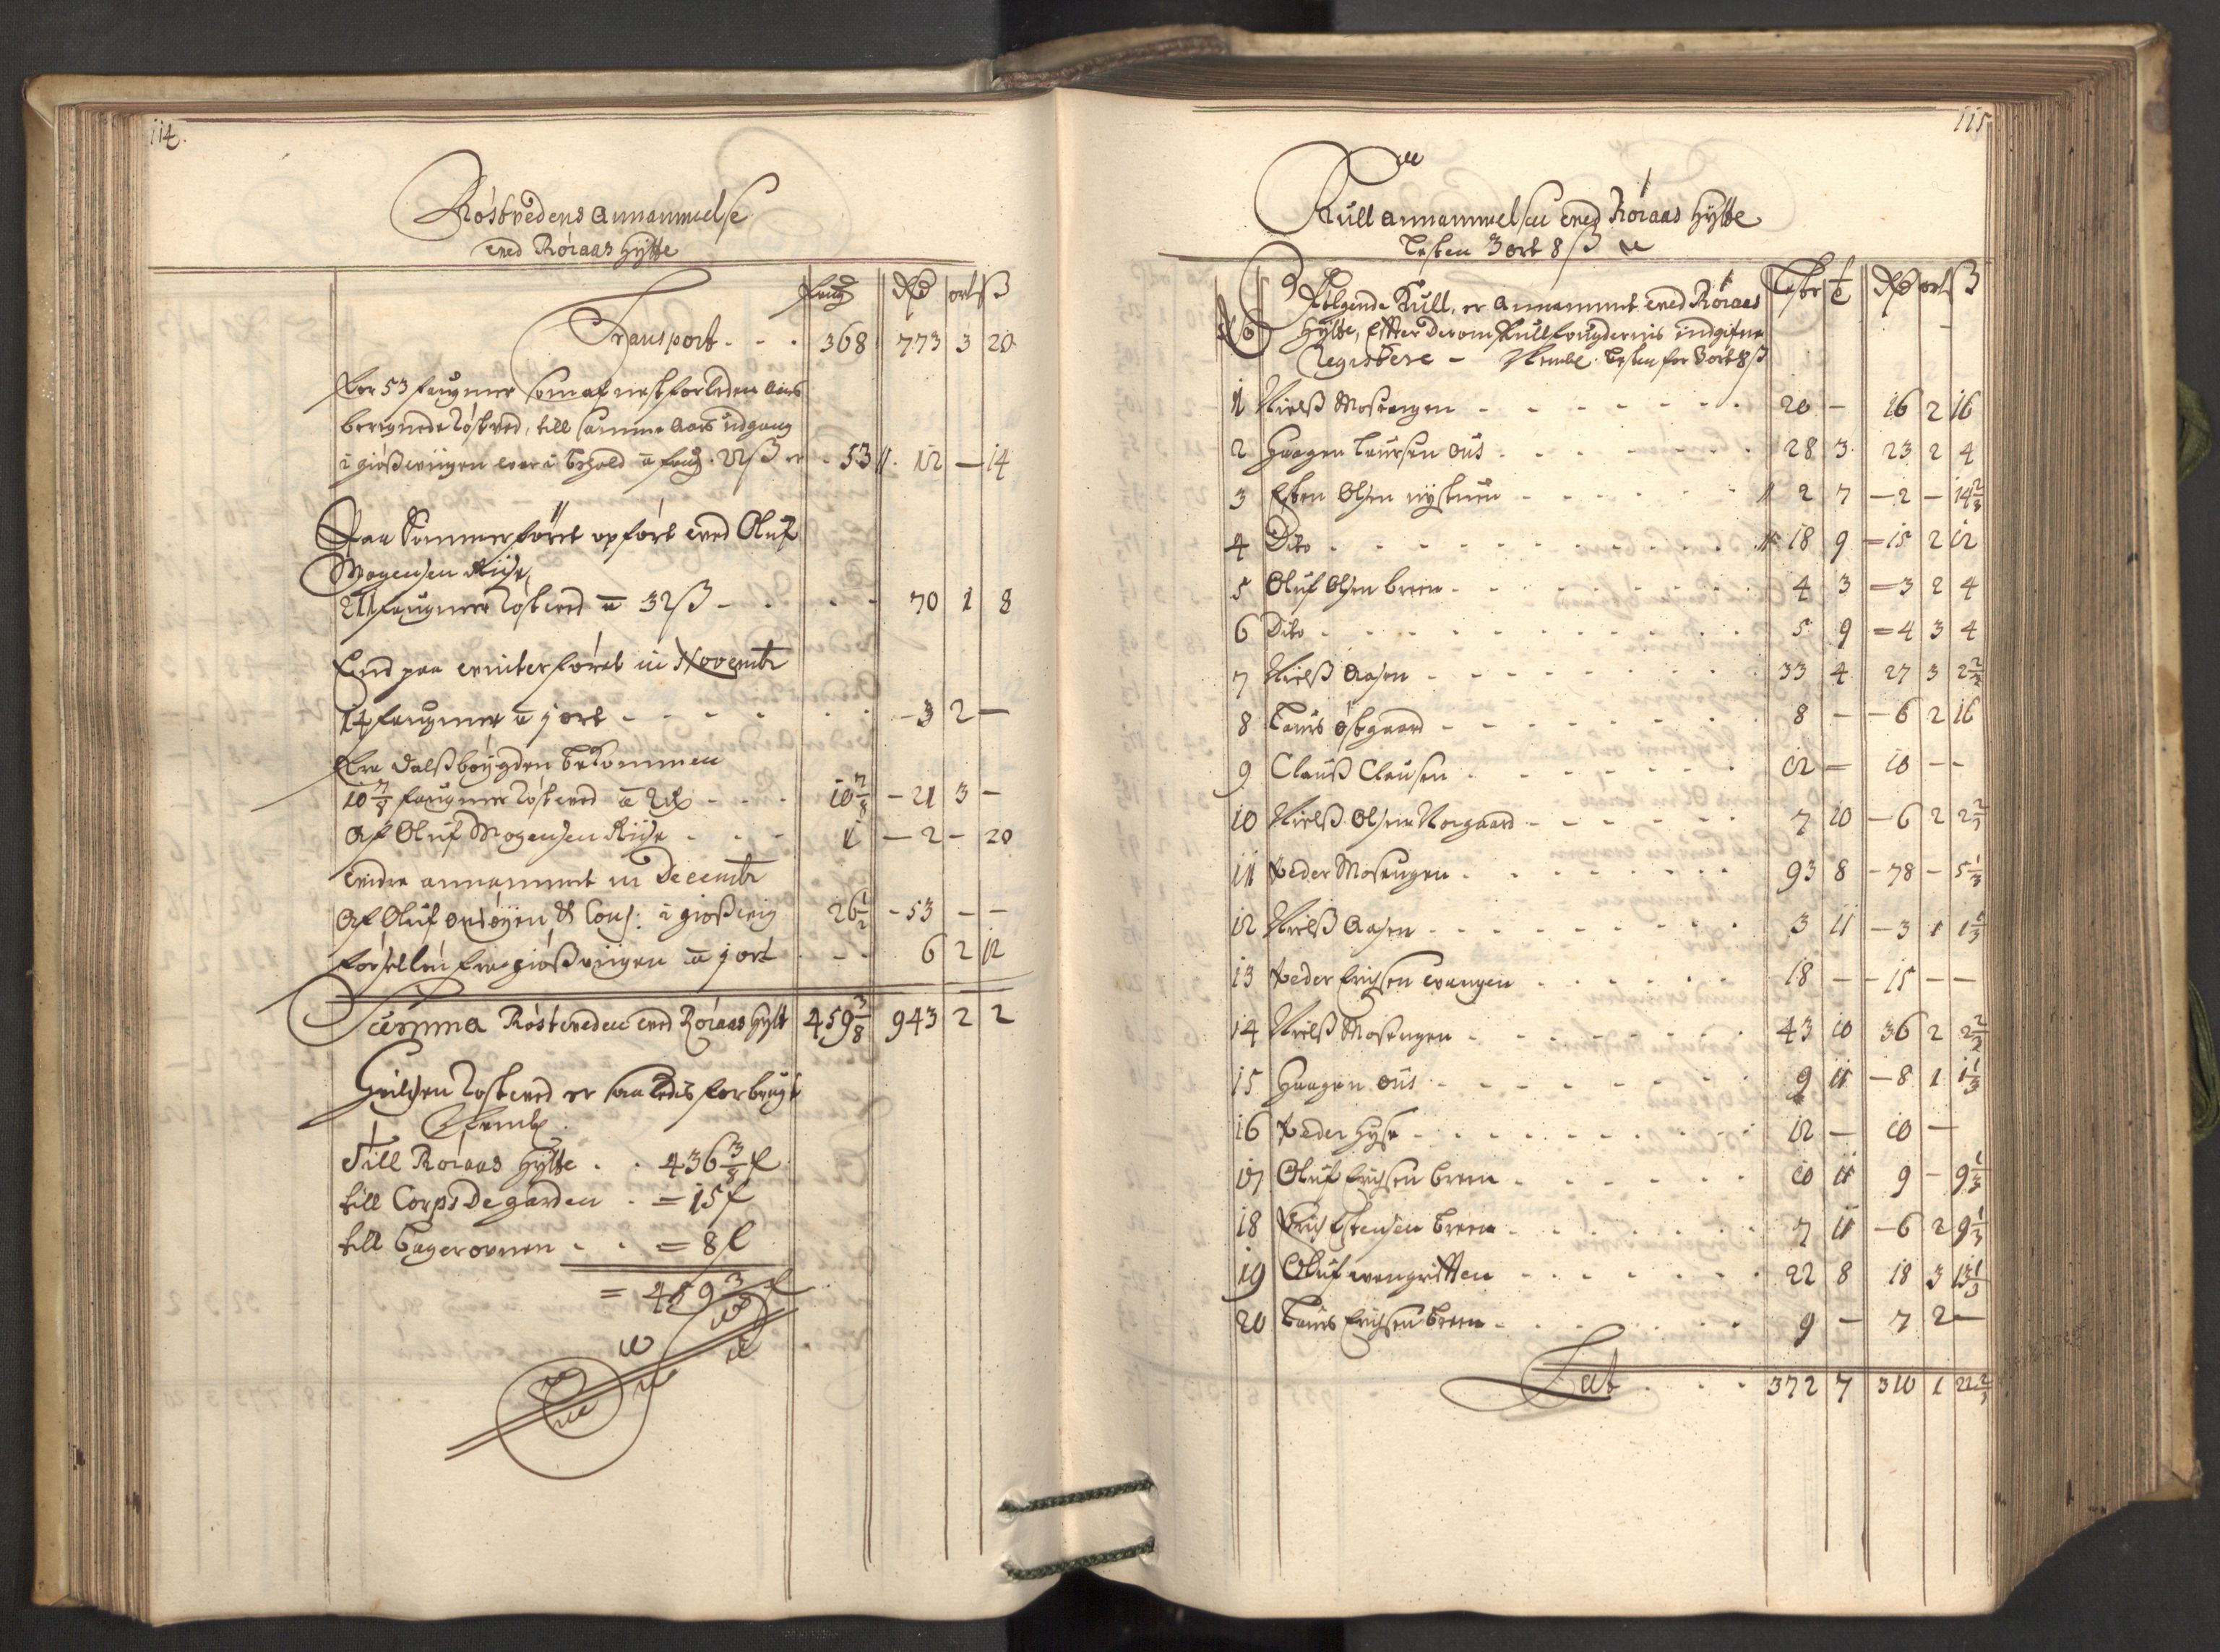 114.
Röstvedens Annammelse
ved Röraas Hÿtte
faug Rd ort ß
Transport - - - 368 773 3 20
for 53 faugner som af nest forleden Aars
beregnede Röstved, till samme Aars udgang
i giösvigen var i behold a faug 22ß er - 53 12 — 14
Paa Sommerföret opfört ved Oluf
Mogensen Riise,
211 faugner Röstved a 32ß - - - - 70 1 8
End paa vinterföret in Novembr
14 faugner a j ort - - - - - 3 2 —
fra Dalsböÿgden bekommen
10 7/8 faugner Röstved a 2 Rd - - - 10 7/8 - 21 3 -
Af Oluf Mogensen Riise - - - 1 — 2 - 20
vidre annammet in Decembr
Af Oluf ousöyen & Cons: i giösvig 26 1/2 - 53 - -
förselen fra giösvigen a j ort - - 6 2 12
Summa Röstveden ved Röraas Hytt 459 3/8 943 2 2
Hvilchen Röstved er saaledis forbrugt
Neml.
Till Röraas Hÿtte . . 436 3/8 f
till Corps De garden . = 15 f
till Bagerovnen . . = 8 f
= 459 3/8 f
115
Kull annammelsen ved Röraas Hÿtte
Lesten 3 ort 8 ß
No Fölgende Kull, er Annammet ved Röraas Lester t Rd ort ß
Hÿtte, Efter derom Kullfougdernis indgifne
Registere - Neml. Lesten for 3 ort 8 ß
1 Nielß Mosengen - - - - - - - 20 - 16 2 16
2 Haagen Laursen Aus - - - - - - 28 3 23 2 4
3 Esten Olsen nÿstuen - - - - - - 2 7 - 2 - 14 2/3
4 Dito - - - - - - - - - - 18 9 = 15 2 12
5 Oluf Olsen breen - - - - - - - 4 3 = 3 2 4
6 Dito - - - - - - - - - - 5 9 = 4 3 4
7 Nielß Aasen - - - - - - - - 33 4 27 3 2 2/3
8 Laurs östgaard - - - - - - - 8 - - 6 2 16
9 Clauß Clausen - - - - - - - 12 = 10 - -
10 Nielß Olsen Norgaard - - - - - - 7 10 - 6 2 2 2/3
11 Peder Mosengen - - - - - - - 93 8 - 78 - 5 1/3
12 Nielß Aasen - - - - - - - - 3 11 - 3 1 1 1/3
13 Peder Erichsen vangen - - - - - 18 - - 15 - -
14 Nielß Mosengen - - - - - - - 43 10 36 2 2 2/3
15 Haagen Aus - - - - - - - - 9 11 - 8 1 1 1/3
16 Peder Hÿse - - - - - - - - 12 — 10 —
17 Oluf Erichsen breen - - - - - - 10 11 9 - 9 1/3
18 Erich Estensen Breen - - - - - - 7 11 - 6 2 9 1/3
19 Oluf wengsletten - - - - - - 22 8 18 3 13 1/3
20 Laurs Erichsen Breen - - - - - - 9 - 7 2 —
Lat - - - 372 7 310 1 21 2/3